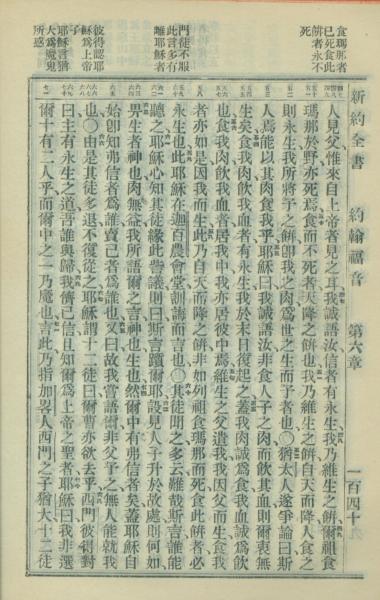 新約全書 約翰福音 第六章 一百四十
食瑪那者
已死食此
餅者永不
死
門徒不服
此言多有
離耶穌者
彼得認耶
穌爲上帝
子
耶穌言猶
大爲魔鬼
所惑
人見父惟來自上帝者見之耳我誠語汝信者有永生我乃維生之餅爾祖食
瑪那於野亦死焉食而不死者天降之餅也我乃維生之餅自天而降人食之
則永生我所將予之餅卽我之肉爲世之生而予者也〇猶太人遂爭論曰斯
人焉能以其肉食我乎耶穌曰我誠語汝非食人子之肉而飲其血則爾衷無
生矣食我肉飲我血者有永生我於末日復起之蓋我肉誠爲食我血誠爲飲
也食我肉飲我血者居我中我亦居彼中焉維生之父遣我我因父而生食我
者亦如是因我而生此乃自天而降之餅非如列祖食瑪那而死食此餅者必
永生也此耶穌在迦百農會堂訓誨而言也〇其徒聞之多云難哉斯言誰能
聽之耶穌心知其徒緣此訾議則曰斯言躓爾耶設見人子升於故處則何如
畀生者神也肉無益我所語爾之言神也生也然爾中有弗信者矣蓋耶穌自
始卽知弗信者爲誰賣己者爲誰也又曰故我嘗語爾非父予之無人能就我
也〇由是其徒多退不復從之耶穌謂十二徒曰爾曹亦欲去乎西門彼得對
曰主有永生之道吾誰與歸我儕已信且知爾爲上帝之聖者耶穌曰我非選
爾十有二人乎而爾中之一乃魔也言此乃指加畧人西門之子猶大十二徒